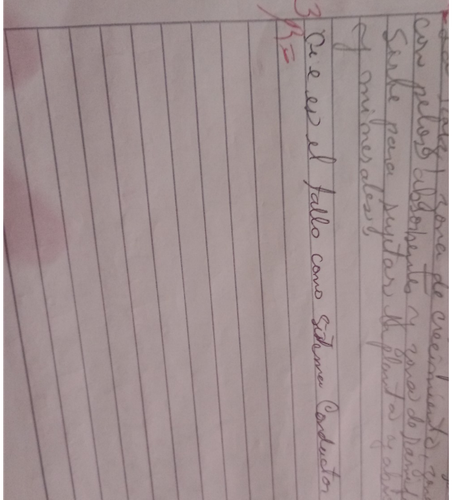 zona de crecimiento
con pelos absorbentes y zona de
Sirve para sujetar la planta y
y minerales
3 Que es el tallo como sistema Conductor
R=